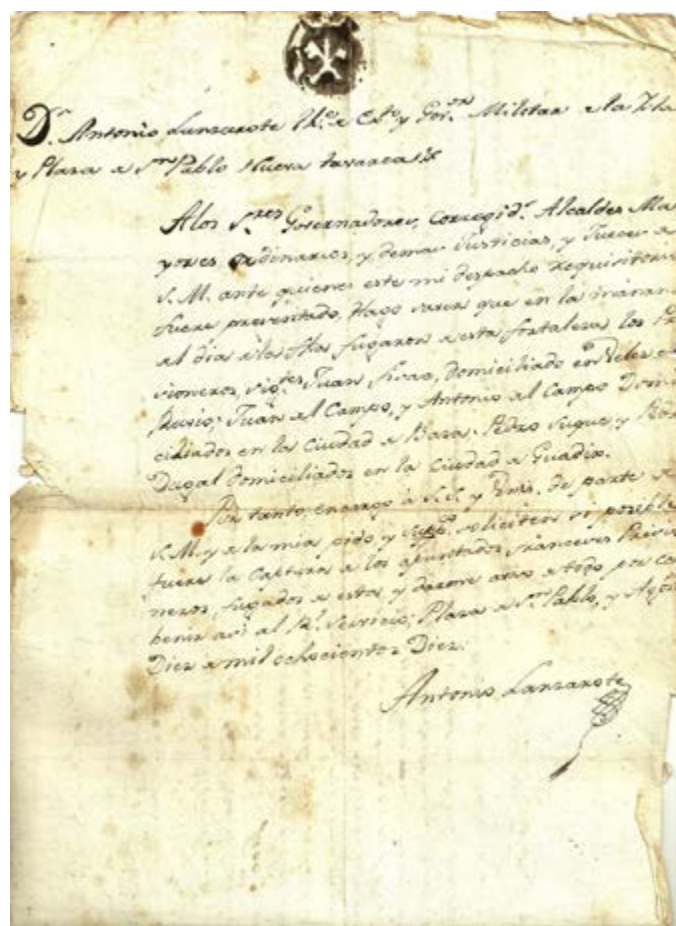 Dn. Antonio Lanzarote Thº. de Exto. y Gor.or Militar de la Isla
y Plaza de Sn. Pablo Nueva tavarca &
Alos Sres. Governadores, Corregidr. Alcaldes Ma
yores, ordinarios, y demas Justicias, y Jueces de
S. M. ante quienes este mi despacho requisitorio
fuere presentado, Hago saver que en la mañana
del dia de la fha fugaron de esta fortaleza los Pri
sioneros, sigtes. Juan domiciliado en Veles
Rubio; Juan del Campo, y Antonio del Campo Domi
ciliados en la Ciudad de Baza. Pedro Suque, y
Dugal domiciliados en la Ciudad de Guadix.
Por tanto, encargo à S. S. y de parte de
S. M. y de la mia pido y supco. soliciten si posible
fuere la Captura de los apuntados franceses Prisio
neros, fugados de esta, y darme aviso de todo por con
benir asi al Rl. Servicio; Plaza de Sn. Pablo, y Agto.
Diez de mil ochocientos Diez.
Antonio Lanzarote